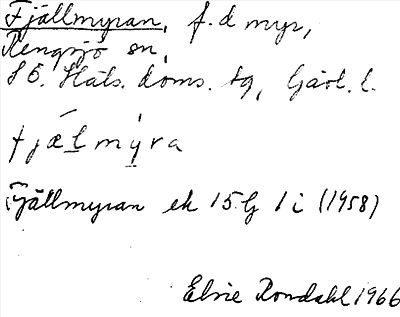 Fjällmyran, f.d myr,
Rengsjö sn,
S ö. Häls. doms. tg, Gävl. l.
fjæ´l mỳra
Fjällmyran ek 15G 1 i (1958)
Elsie Rondahl 1966